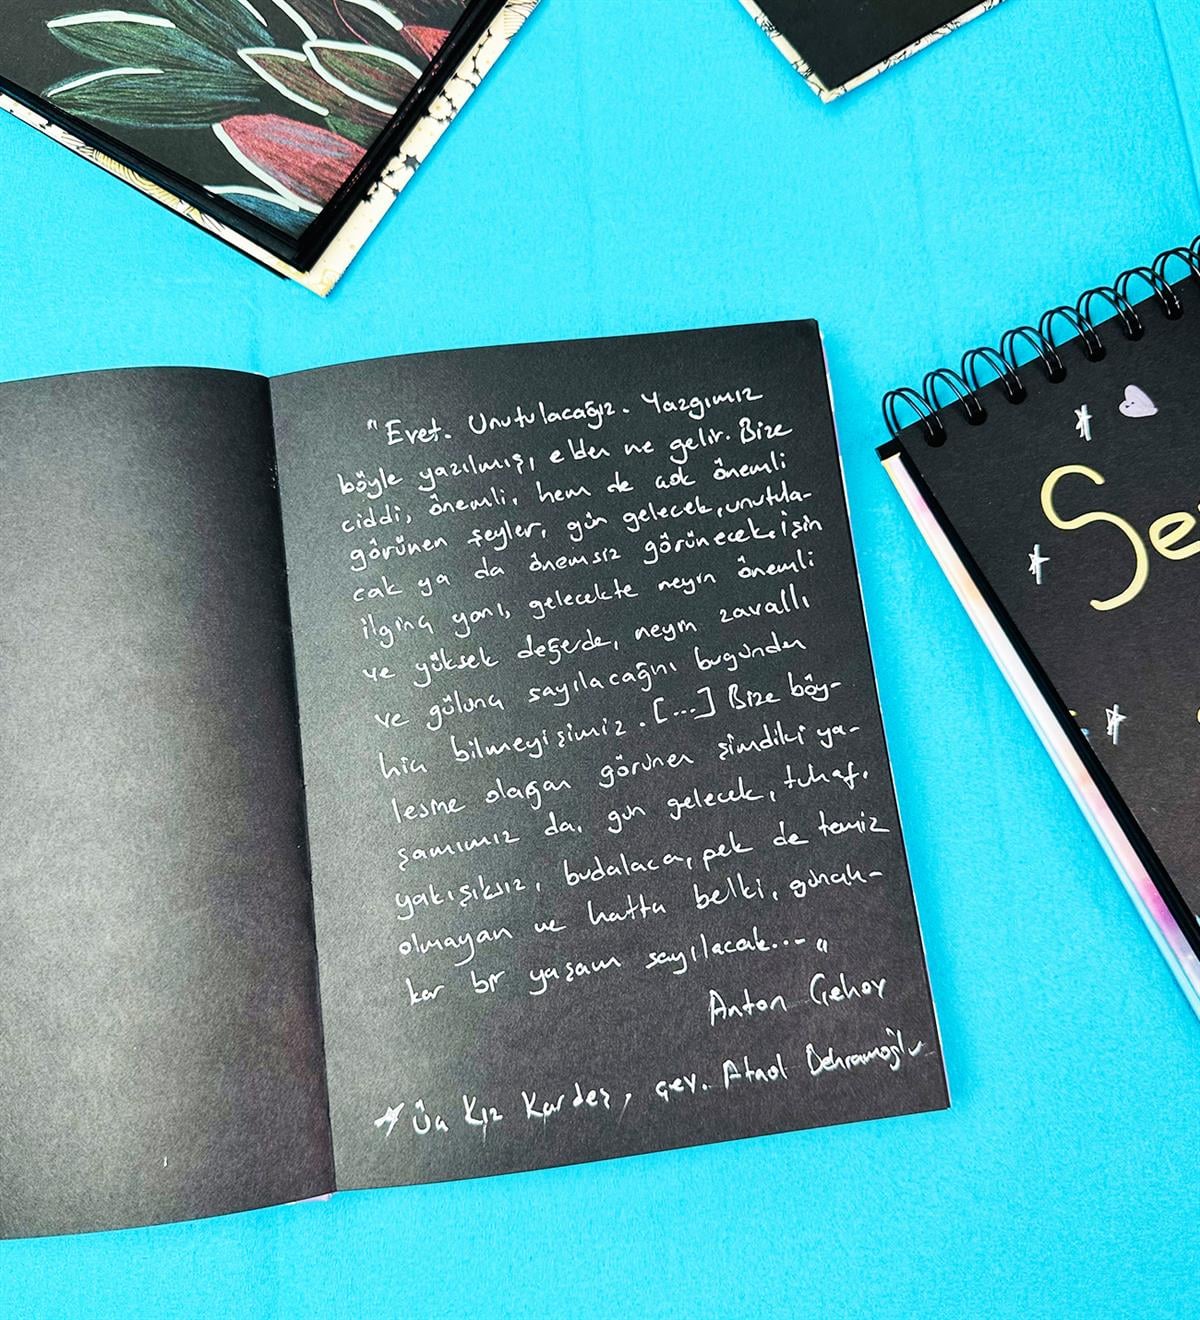 "Evet. Unutulacağız. Yazgımız
böyle yazılmış, elden ne gelir. Bize
ciddi, önemli, hem de çok önemli
görünen şeyler, gün gelecek, unutula-
cak ya da önemsiz görünecek. İşin
ilginç yanı, gelecekte neyin önemli
ve yüksek değerde, neyin zavallı
ve gülünç sayılacağını bugünden
hiç bilmeyişimiz. [...] Bize böy-
lesine olağan görünen şimdiki ya-
şamımız da, gün gelecek, tuhaf,
yakışıksız, budalaca, pek de temiz
olmayan ve hatta belki, günah-
kar bir yaşam sayılacak..."
Anton Çehov
Üç Kız Kardeş, çev. Ataol Behramoğlu
Se